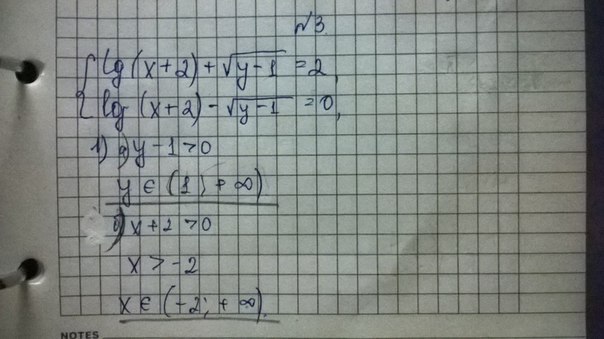 №3
lg (x+2) + √y-1 = 2,
log (x+2) - √y-1 = 0,
1) а) y-1>0
y ∈ (1; +∞)
б) x+2>0
x > -2
x ∈ (-2; +∞).
NOTES